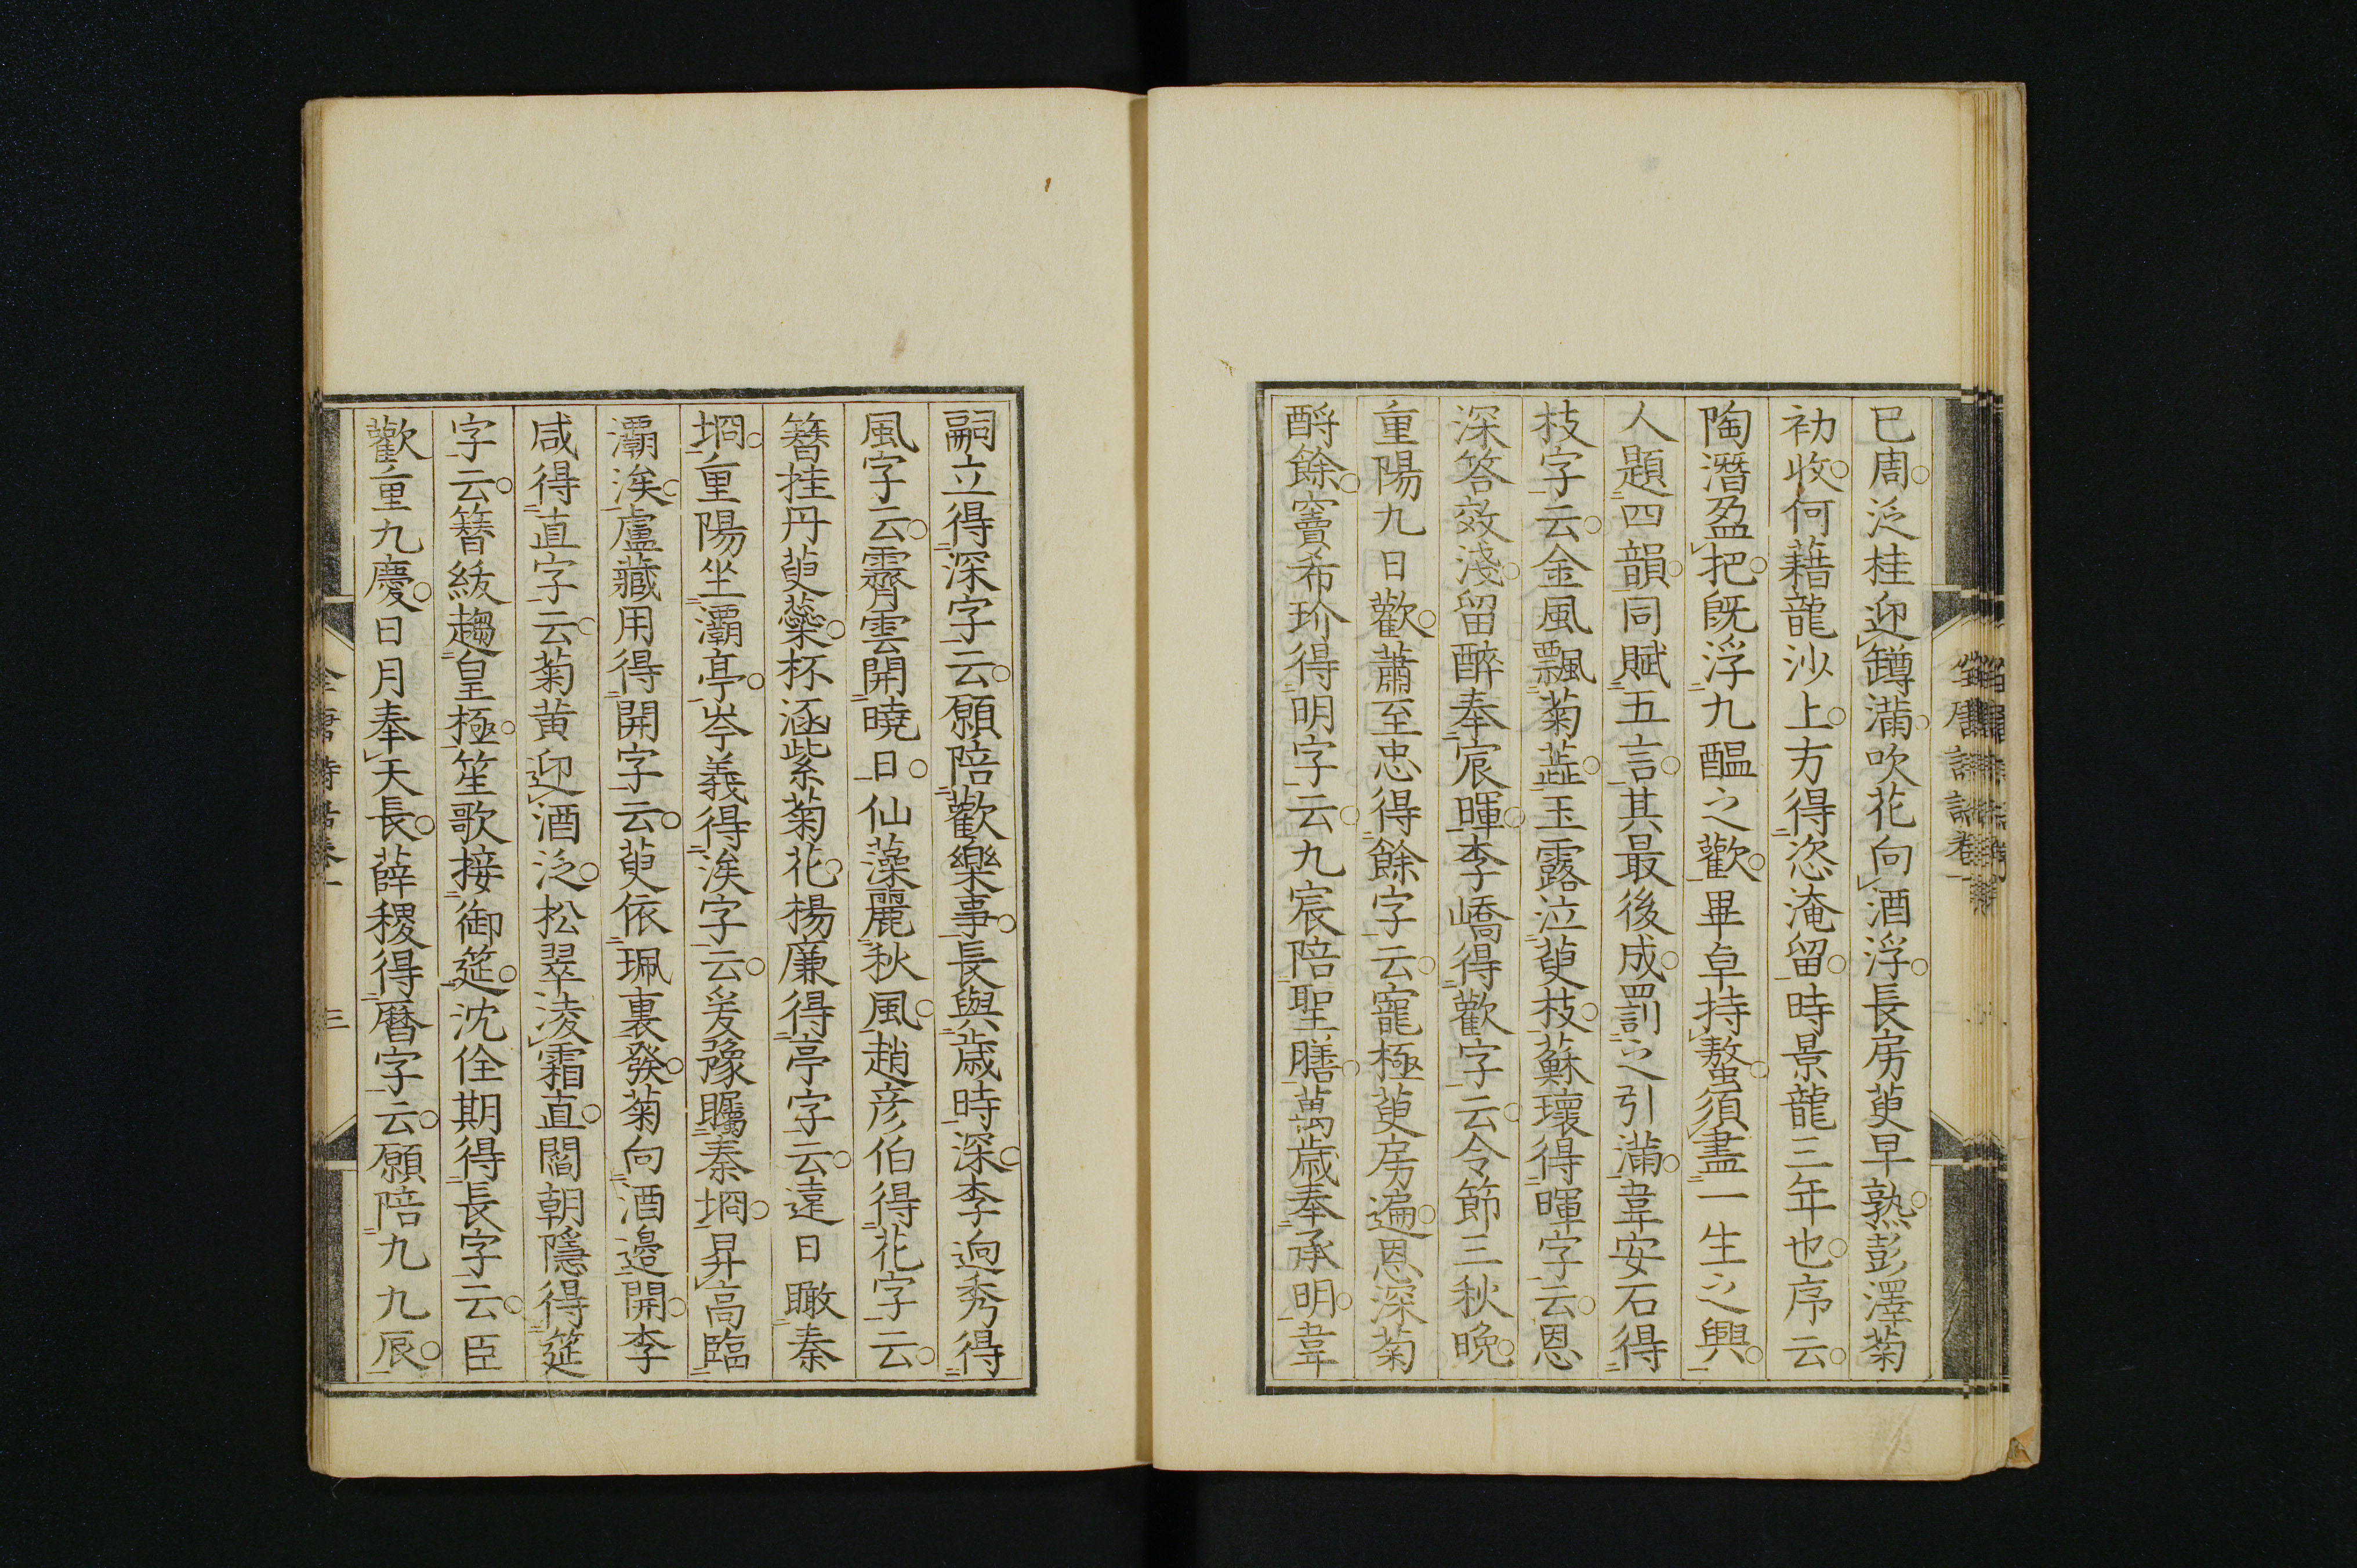 已周泛桂迎罇滿吹花向酒浮長房萸早熟彭澤菊
初收何藉龍沙上方得恣淹留時景龍三年也序云
陶潛盈把既浮九醖之歡畢卓持螯須盡一生之興
人題四韻同賦五言其最後成罰之引滿韋安石得
枝字云金風飄菊蘂玉露泣萸枝蘇瓌得暉字云恩
深答效淺留醉奉宸暉李嶠得歡字云令節三秋晚
重陽九日歡蕭至忠得餘字云寵極萸房遍恩深菊
酹餘竇希玠得明字云九宸陪聖膳萬歲奉承明韋
嗣立得深字云願陪歡樂事長與歲時深李迥秀得
風字云霽雲開曉日仙藻麗秋風趙彦伯得花字云
簪挂丹萸蘂杯涵紫菊花楊廉得亭字云遠日瞰秦
坰重陽坐灞亭岑義得涘字云爰豫矚秦坰昇高臨
灞涘盧藏用得開字云萸依珮裏發菊向酒邉開李
咸得直字云菊黄迎酒泛松翠凌霜直閻朝隱得筵
字云簪紱趨皇極笙歌接御筵沈佺期得長字云臣
歡重九慶日月奉天長薛稷得曆字云願陪九九辰
全唐詩話卷一
三